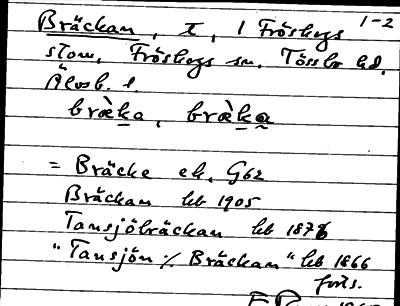 1-2
Bräckan, t, i Fröskogs
stom, Fröskogs sn, Tössbo hd,
Älvsb. l.
bræ̀ka, bræ̀ka
= Bräcke ek. G62
Bräckan hb 1905
Tansjöbräckan hb 1876
"Tansjön % Bräckan" hb 1866
forts.